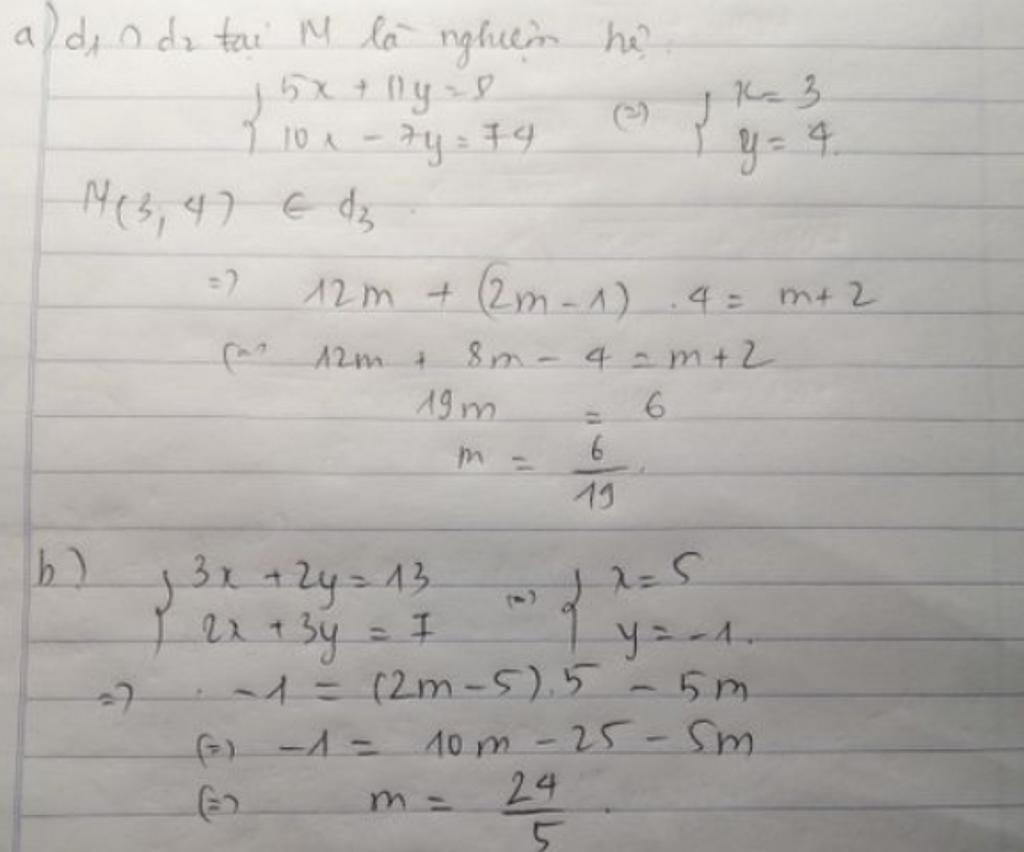 a) d₁ ∩ d₂ tại M là nghiệm hệ:
{ 5x + 11y = 8 (=) { x = 3
10x - 7y = 74 y = 4.
M(3, 4) ∈ d₃.
=) 12m + (2m - 1) . 4 = m + 2
(=) 12m + 8m - 4 = m + 2
19m = 6
m = 6/19.
b) { 3x + 2y = 13 (=) { x = 5
2x + 3y = 7 y = -1.
=) . -1 = (2m - 5).5 - 5m
(=) -1 = 10m - 25 - 5m
(=) m = 24/5.